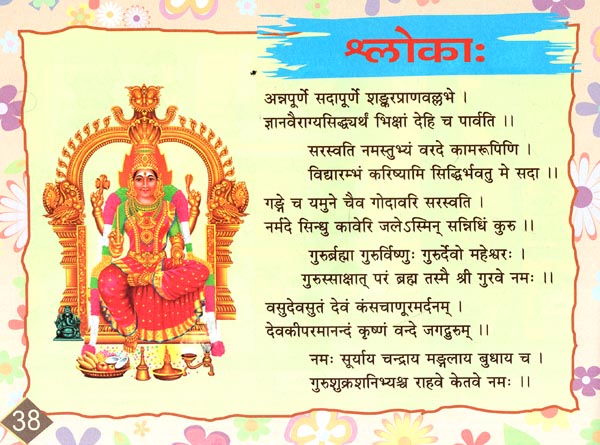 श्लोकाः
अन्नपूर्णे सदापूर्णे शङ्करप्राणवल्लभे ।
ज्ञानवैराग्यसिद्ध्यर्थं भिक्षां देहि च पार्वति ।।
सरस्वति नमस्तुभ्यं वरदे कामरूपिणि ।
विद्यारम्भं करिष्यामि सिद्धिर्भवतु मे सदा ।।
गङ्गे च यमुने चैव गोदावरि सरस्वति ।
नर्मदे सिन्धु कावेरि जलेऽस्मिन् सन्निधिं कुरु ।।
गुरुर्ब्रह्मा गुरुर्विष्णुः गुरुर्देवो महेश्वरः ।
गुरुस्साक्षात् परं ब्रह्म तस्मै श्री गुरवे नमः ।।
वसुदेवसुतं देवं कंसचाणूरमर्दनम् ।
देवकीपरमानन्दं कृष्णं वन्दे जगद्गुरुम् ।।
नमः सूर्याय चन्द्राय मङ्गलाय बुधाय च ।
गुरुशुक्रशनिभ्यश्च राहवे केतवे नमः ।।
38